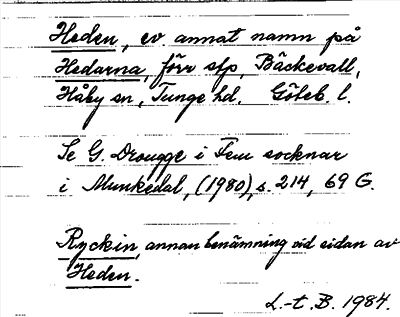 Heden, ev. annat namn på
Hedarna, förr sfp, Bäckevall,
Håby sn, Tunge hd. Göteb. l.
Se G. Drougge i Fem socknar
i Munkedal, (1980), s. 214, 69 G.
Ryckin, annan benämning vid sidan av
Heden.
L.-t. B. 1984.